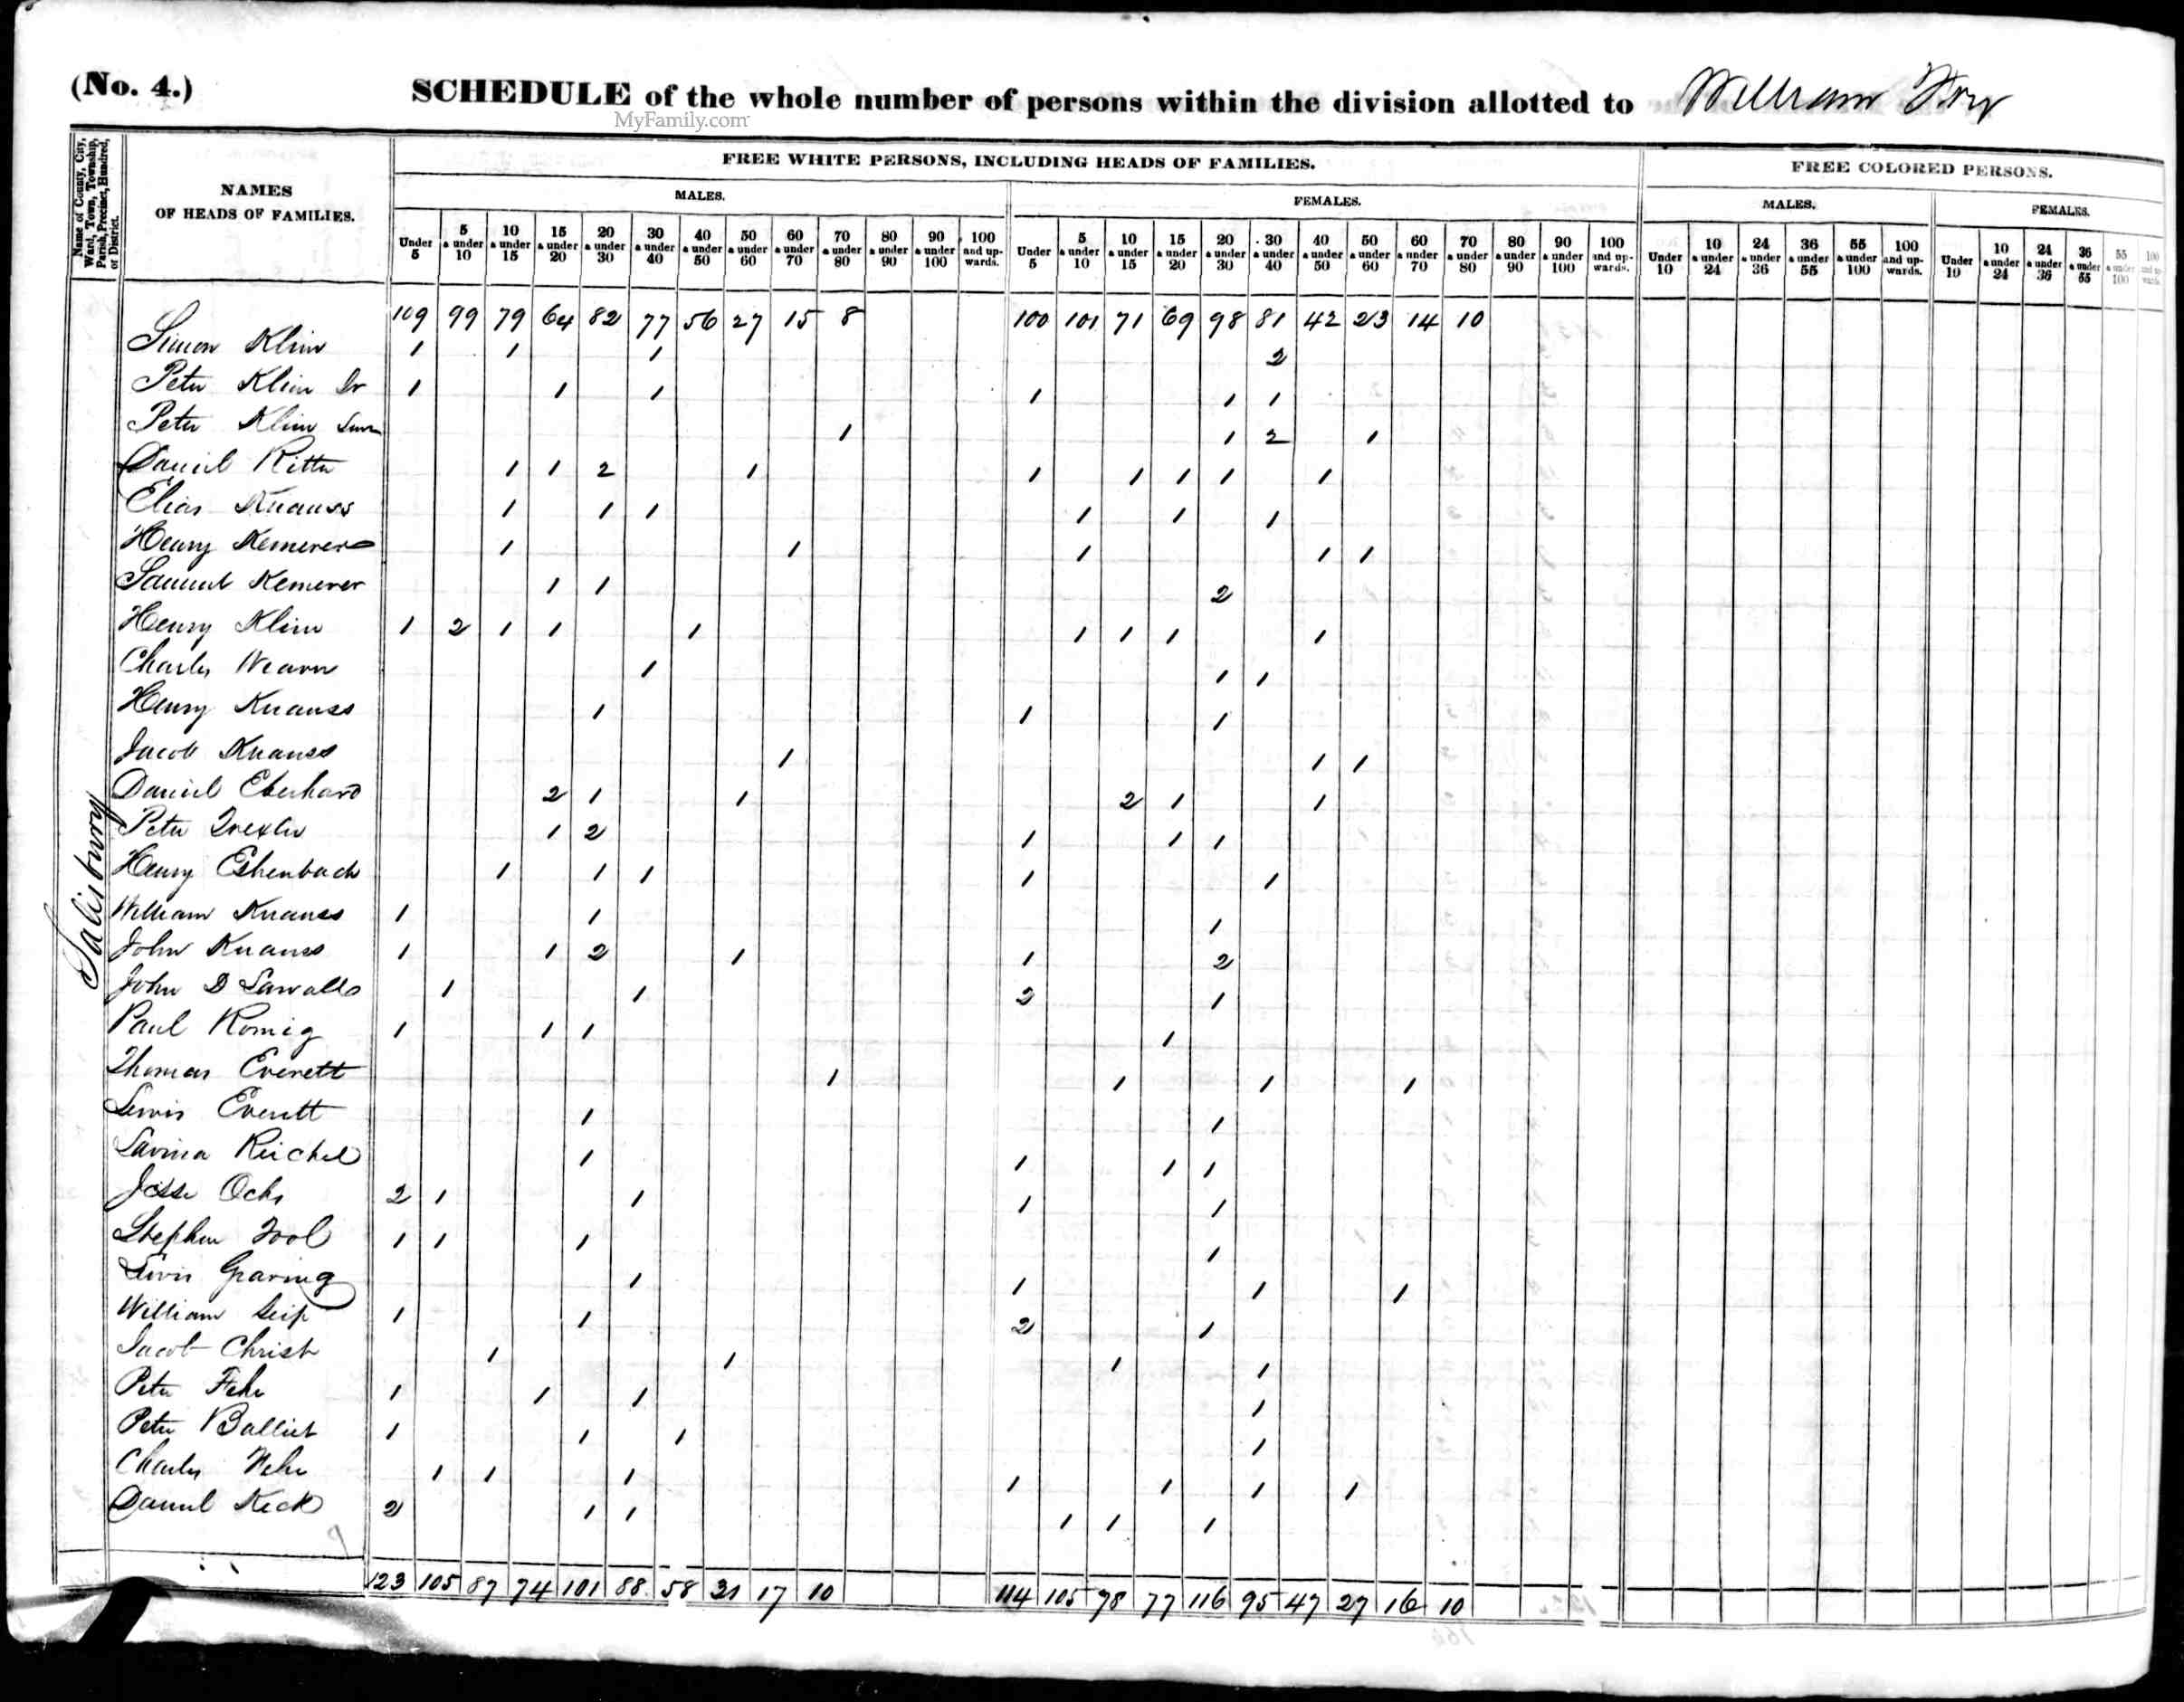 (No. 4.) SCHEDULE of the whole number of persons within the division allotted to William
MyFamily.com
Name of County, City, Ward, Town, Township, Parish, Precinct, Hundred, or District.
NAMES OF HEADS OF FAMILIES.
FREE WHITE PERSONS, INCLUDING HEADS OF FAMILIES.
FREE COLORED PERSONS.
MALES. FEMALES. MALES. FEMALES.
Under 5 5 & under 10 10 & under 15 15 & under 20 20 & under 30 30 & under 40 40 & under 50 50 & under 60 60 & under 70 70 & under 80 80 & under 90 90 & under 100 100 and upwards. Under 5 5 & under 10 10 & under 15 15 & under 20 20 & under 30 30 & under 40 40 & under 50 50 & under 60 60 & under 70 70 & under 80 80 & under 90 90 & under 100 100 and upwards. Under 10 10 & under 24 24 & under 36 36 & under 55 55 & under 100 100 and upwards. Under 10 10 & under 24 24 & under 36 36 & under 55 55 & under 100 100 and upwards.
109 99 79 64 82 77 56 27 15 8 100 101 71 69 98 81 42 23 14 10
Salisbury
Simon Klein 1 1 1 2
Peter Klein Jr 1 1 1 1 1 1
Peter Klein 1 1 2 1
Daniel Ritter 1 1 2 1 1 1 1 1 1
Elias Knauss 1 1 1 1 1 1
Henry Kemerer 1 1 1 1 1
Samuel Kemerer 1 1 2
Henry Klein 1 2 1 1 1 1 1 1 1
Charles 1 1 1
Henry Knauss 1 1 1
Jacob Knauss 1 1 1
Daniel Eberhard 2 1 1 2 1 1
Peter Trexler 1 2 1 1 1
Henry Eshenbach 1 1 1 1 1
William Knauss 1 1 1
John Knauss 1 1 2 1 1 2
John D 1 1 2 1
Paul Romig 1 1 1 1
Thomas Everett 1 1 1 1
Lewis Everett 1 1
Lavina Reichel 1 1 1 1
Jesse Ochs 2 1 1 1 1
Stephen 1 1 1 1
Lewis 1 1 1 1
William Seip 1 1 2 1
Jacob Christ 1 1 1 1
Peter Fehr 1 1 1 1
Peter Balliet 1 1 1 1
Charles 1 1 1 1 1 1 1
Daniel Keck 2 1 1 1 1 1
123 105 87 74 101 88 58 31 17 10 114 105 78 77 116 95 47 27 16 10